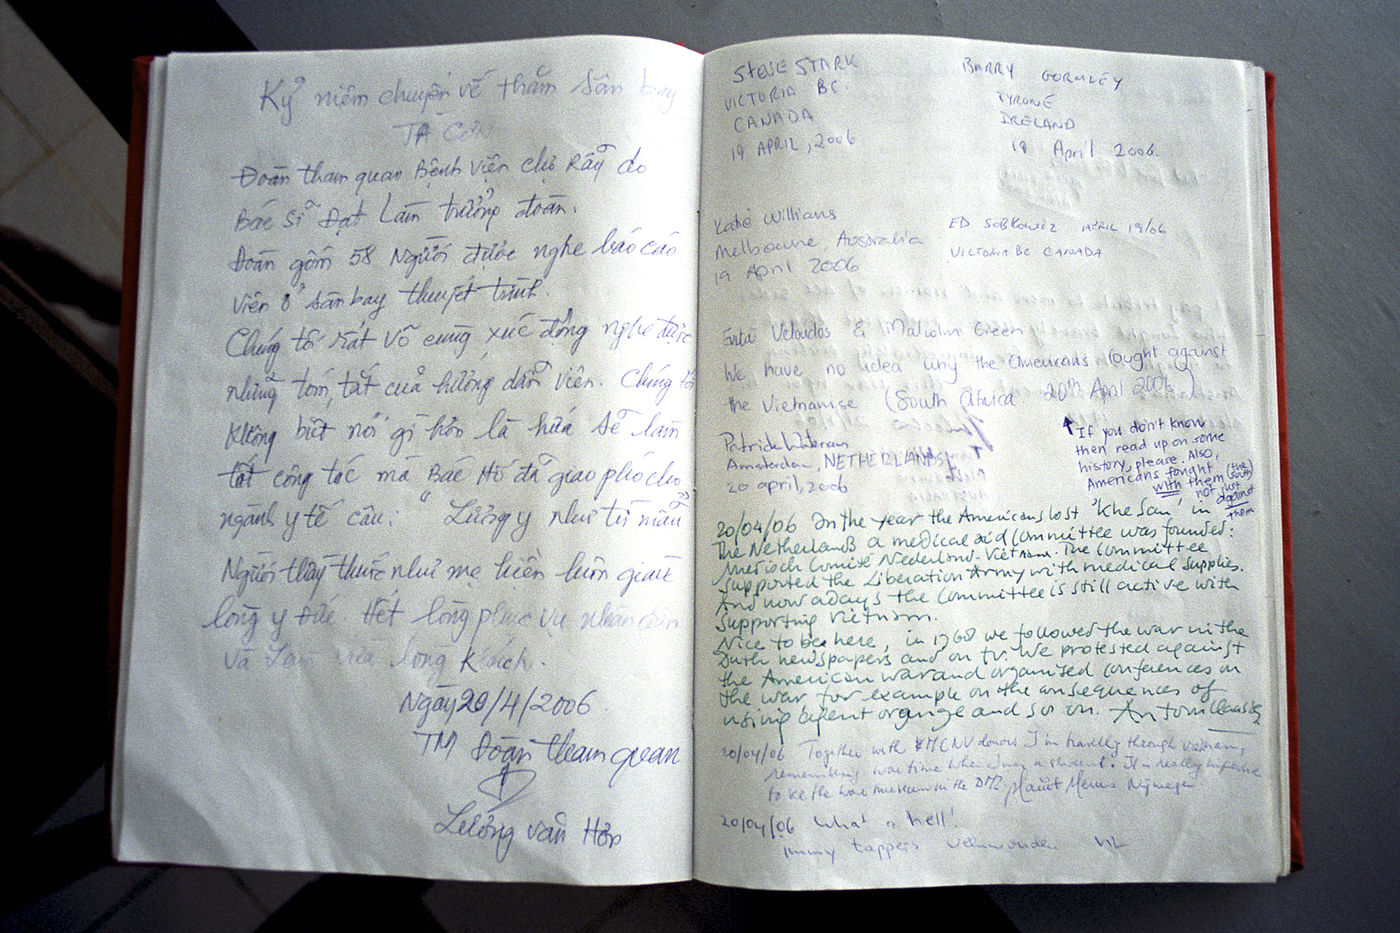 Kỷ niệm chuyến về thăm sân bay
TÀ CƠN
Đoàn tham quan Bệnh viện chợ Rẫy do
Bác sĩ Đạt Làm trưởng đoàn.
Đoàn gồm 58 Người được nghe báo cáo
viên ở sân bay thuyết trình.
Chúng tôi rất vô cùng xúc động nghe được
những tóm tắt của hướng dẫn viên. Chúng tôi
không biết nói gì hơn là hứa sẽ làm
tốt công tác mà Bác Hồ đã giao phó cho
ngành y tế câu. "Lương y như từ mẫu"
Người thầy thuốc như mẹ hiền luôn
lòng y Đức. Hết lòng phục vụ nhân dân
và Làm vừa lòng
Ngày 20/4/2006.
TM Đoàn tham quan
Lương văn Hơn
STEVE STARK
VICTORIA BC.
CANADA
19 APRIL, 2006
BARRY GORMLEY
TYRONE
IRELAND
19 April 2006.
Katie Williams
Melbourne, Australia
19 April 2006
ED SOBKOWICZ APRIL 19/06
VICTORIA BC CANADA
& Malcolm Green
We have no idea why the Americans fought against
the Vietnamise (South Africa. 20th April 2006)
If you don't know
then read up on some
history, please. Also,
Americans fought
with them (the South)
not just
against
them
Patrick
Amsterdam, NETHERLANDS
20 april, 2006
20/04/06 In the year the Americans lost 'Khe San' in
the Netherlands a medical aid committee was founded:
Medisch Comité Nederland-Vietnam. The Committee
supported the Liberation Army with medical supplies.
And now adays the Committee is still active with
supporting Vietnam.
Nice to be here, in 1968 we followed the war in the
Dutch newspapers and on tv. We protested against
the American war and organized conferences on
the war for example on the consequences of
using agent orange and so on.
20/04/06 Together with KMCNV donors I'm travelling through Vietnam,
remembering wartime when I was a student. It is really impressive
to see the war museum in the DMZ Nijmegen
20/04/06 What a hell!
Jimmy tappers NL